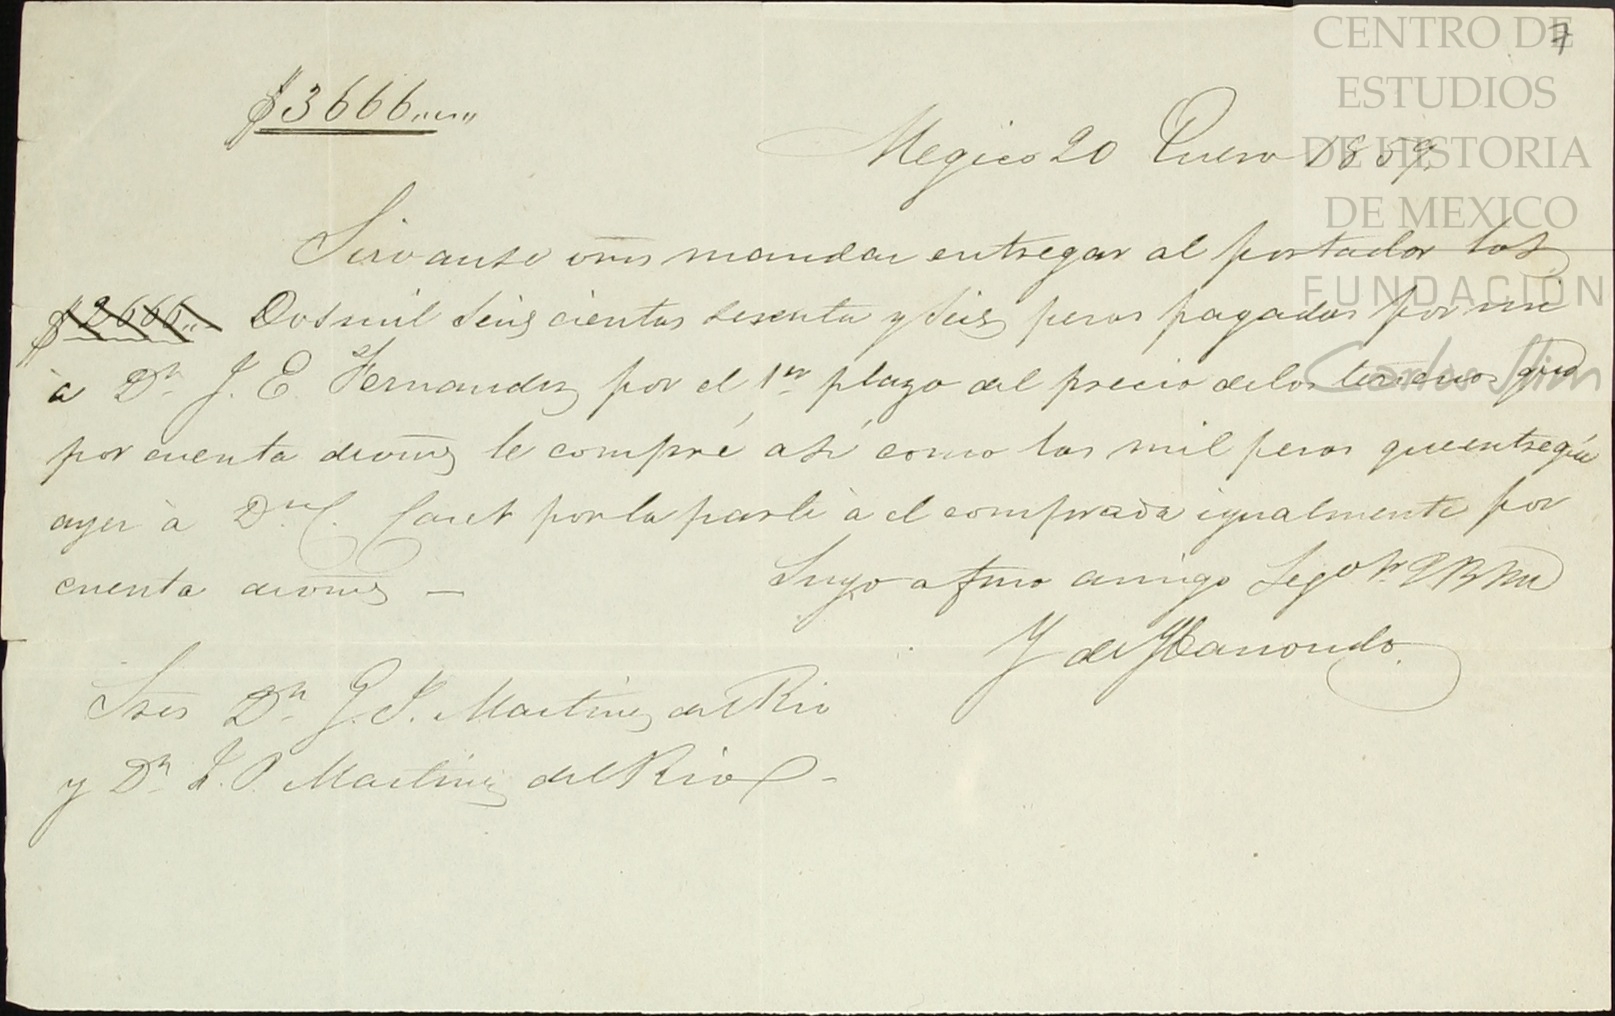 7
$3666,,,,
Megico 20 Enero 1859.
Sirvanse vms mandar entregar al portador los
$2666,, Dos mil seiscientos sesenta y seis pesos pagados por mi
à Dn. J. E. Fernandez por el 1er plazo del precio de los terrenos que
por cuenta de vms le compré asi como los mil pesos que entregué
ayer à Dn. C. por la parte à el comprada igualmente por
cuenta de vms —
Suyo afmo amigo Segº
Y de
Sres Dn. J. P. Martinez del Rio
y Dn. J. P. Martinez del Rio -
CENTRO DE
ESTUDIOS
DE HISTORIA
DE MEXICO
FUNDACIÓN
Carlos Slim